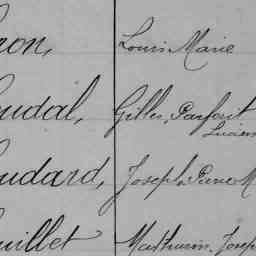 ron, Louis Marie
oudal, Gilles, Parfait
Lucien
oudard, Joseph, Pierre M
uillet Mathurin, Josep